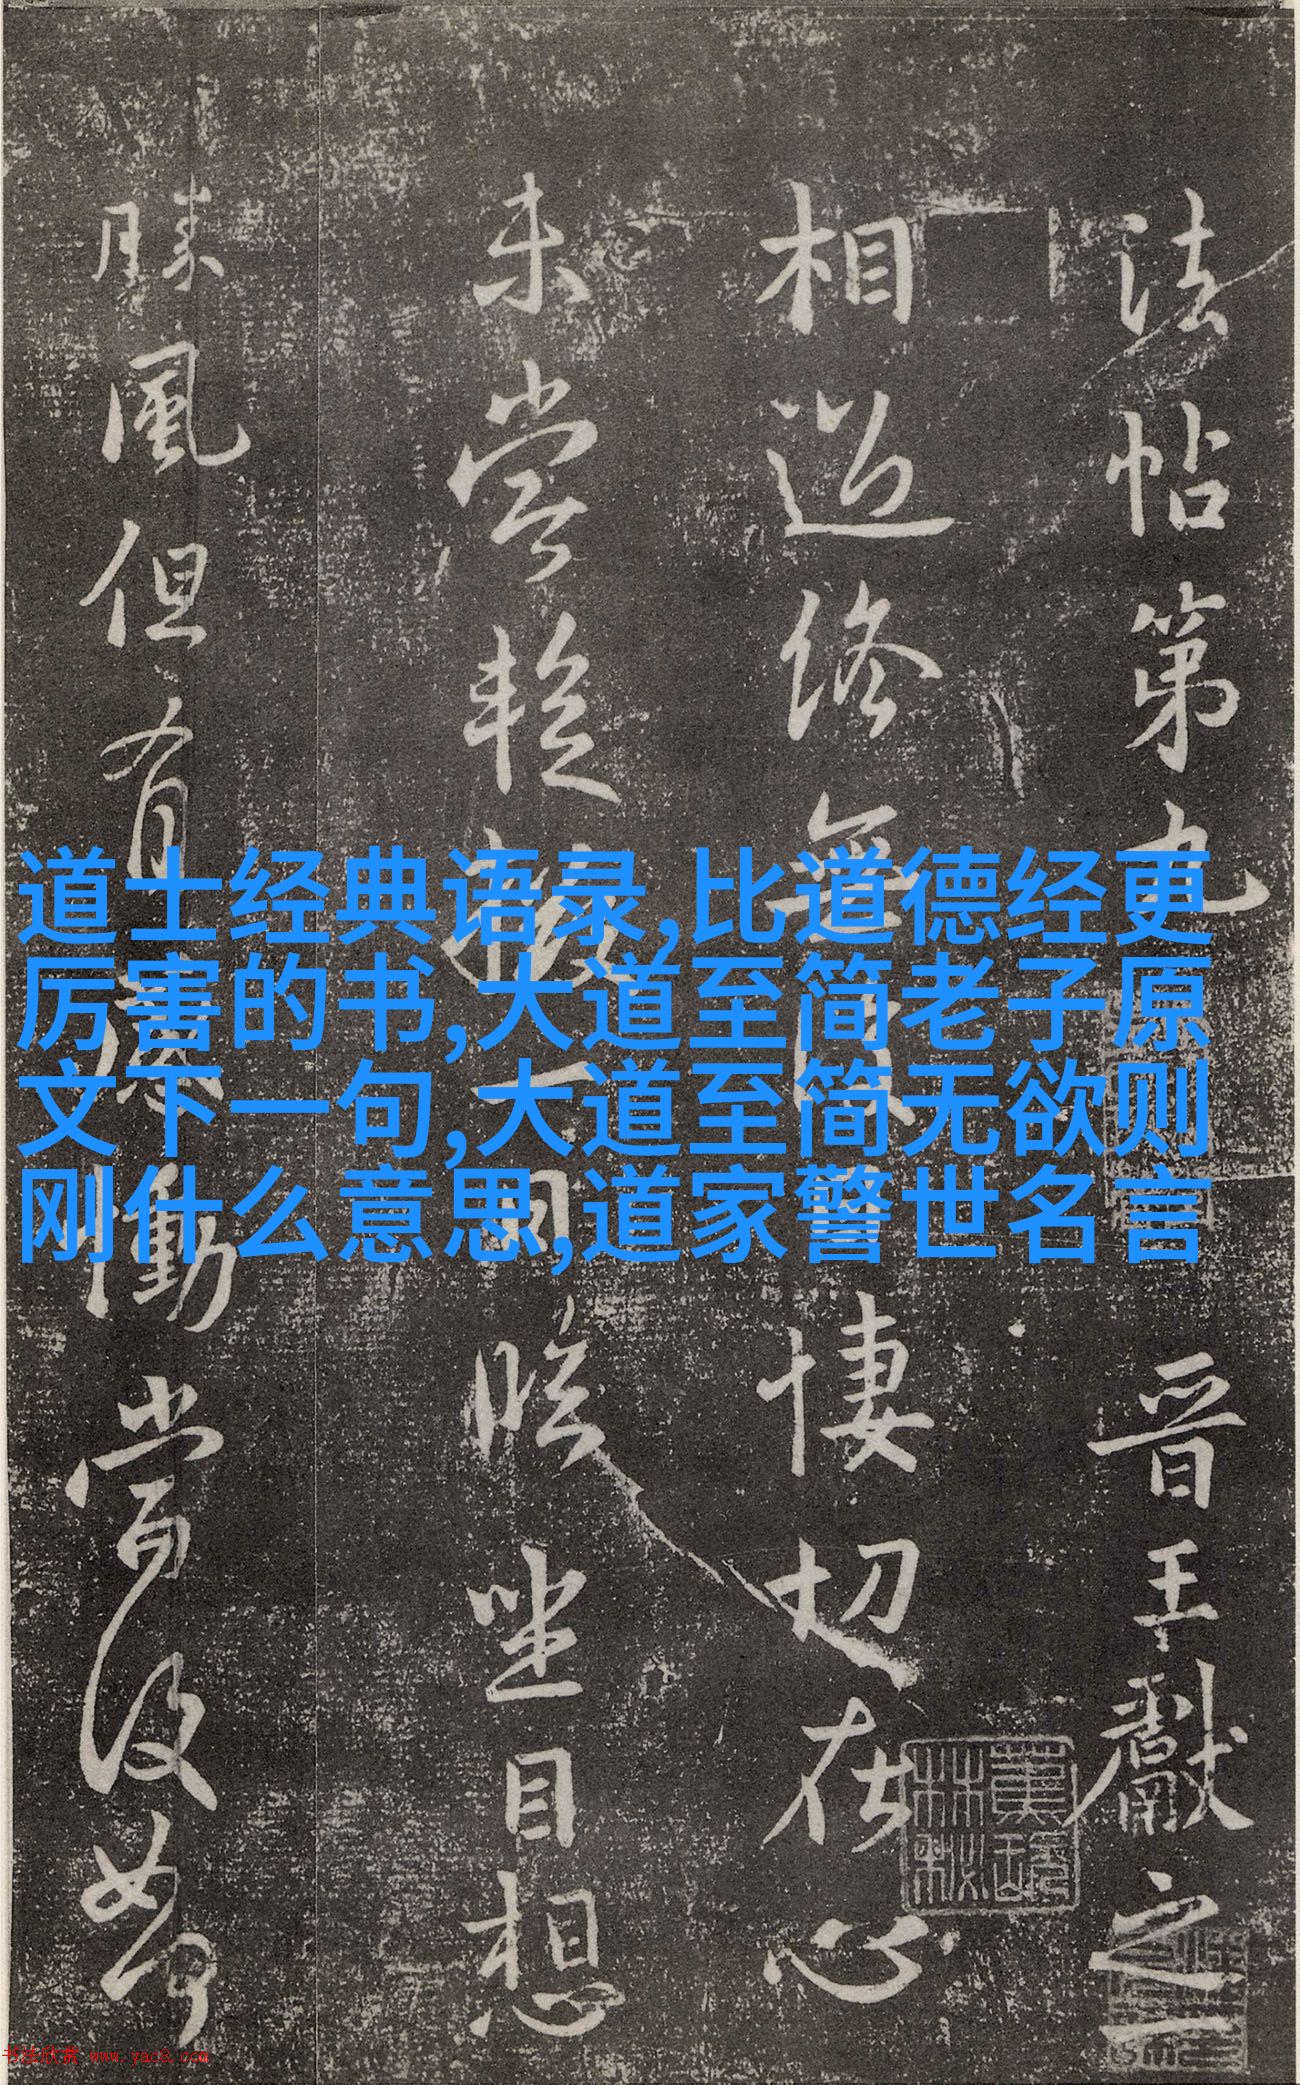 道士经典语录,比道德经更
厉害的书,大道至简老子原
文下一句,大道至简无欲则
刚什么意思,道家警世名言
法帖第九 晉王獻之一
相過終無日悽切在心
未嘗暫掇一日臨坐目想
勝風但有慟當復如何
书法欣赏 www.yac8.com